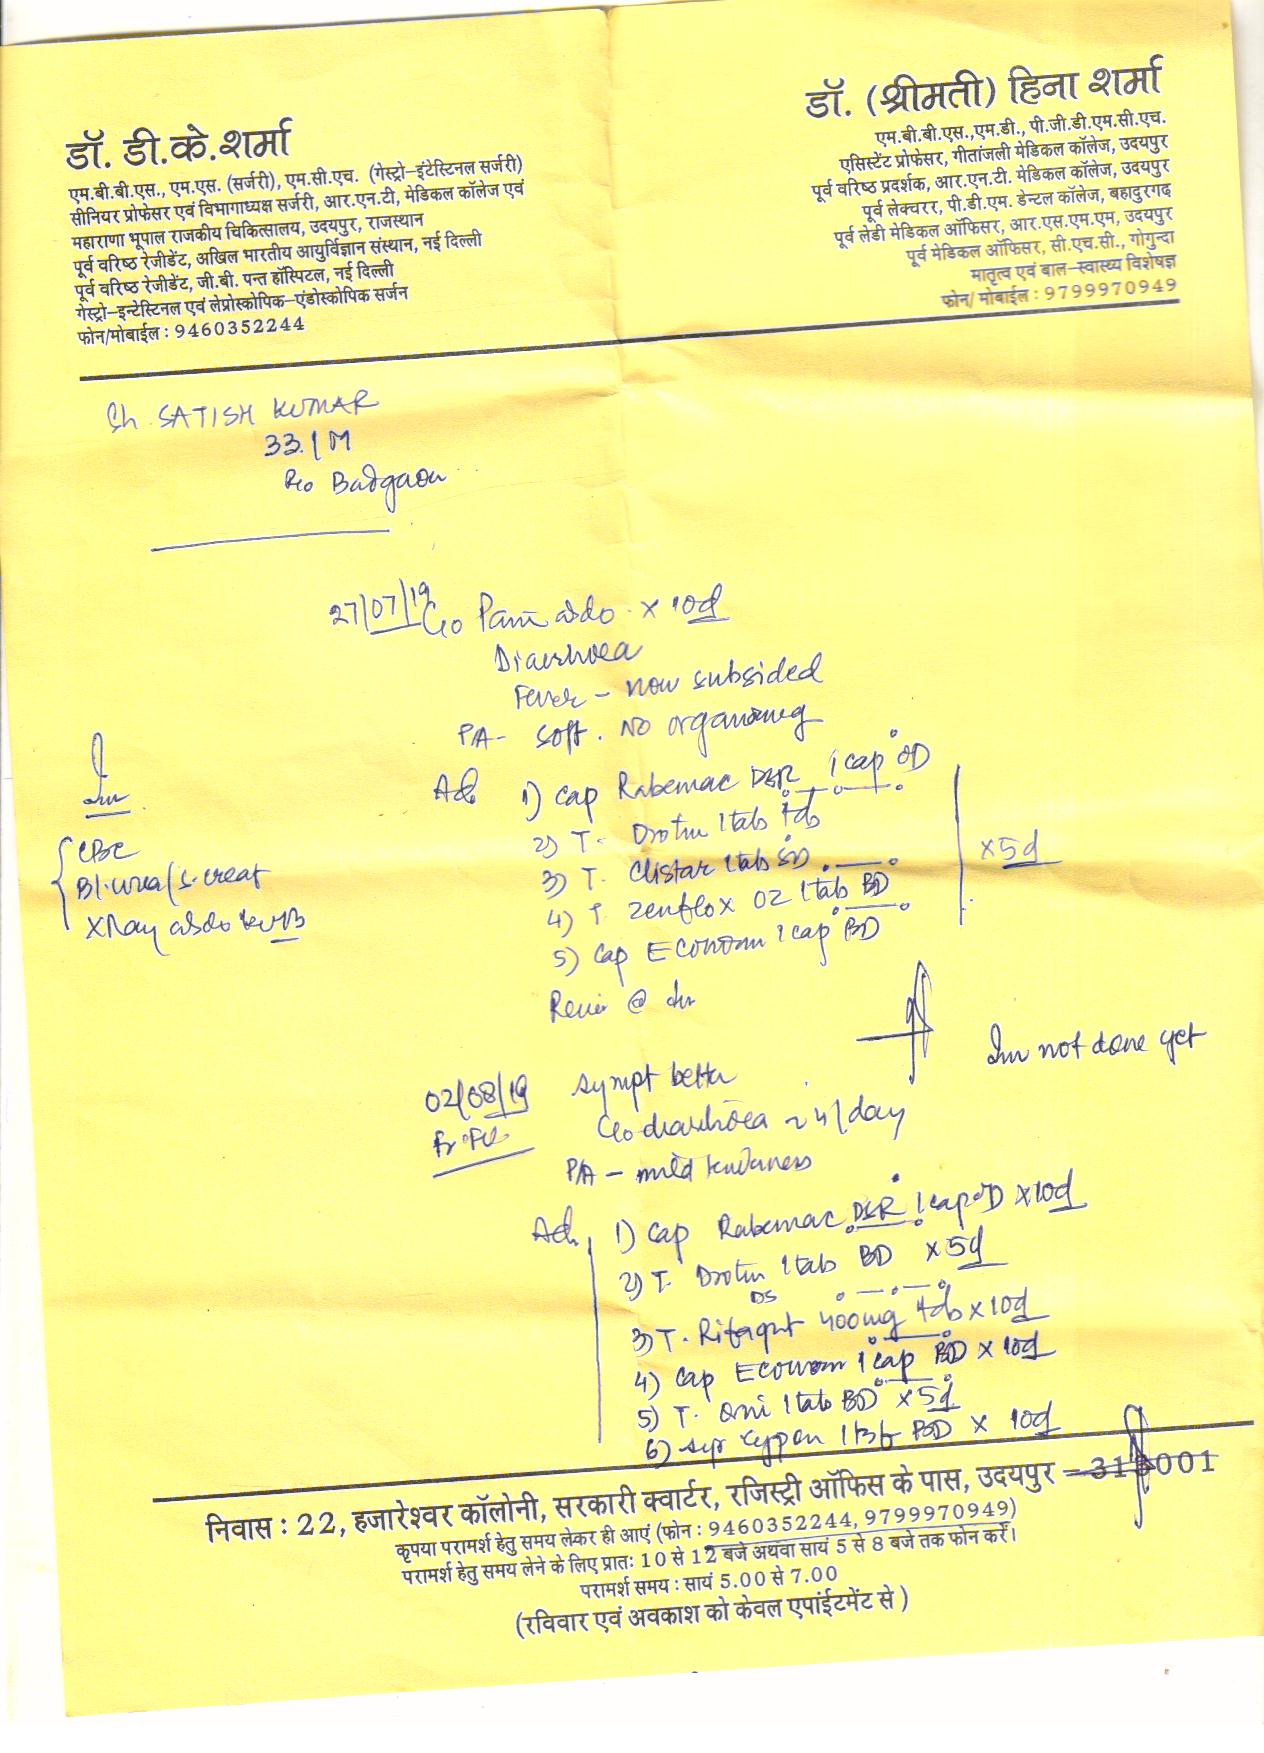 डॉ. डी.के.शर्मा
एम.बी.बी.एस., एम.एस. (सर्जरी), एम.सी.एच. (गेस्ट्रो-इंटेस्टिनल सर्जरी)
सीनियर प्रोफेसर एवं विभागाध्यक्ष सर्जरी, आर.एन.टी, मेडिकल कॉलेज एवं
महाराणा भूपाल राजकीय चिकित्सालय, उदयपुर, राजस्थान
पूर्व वरिष्ठ रेजीडेंट, अखिल भारतीय आयुर्विज्ञान संस्थान, नई दिल्ली
पूर्व वरिष्ठ रेजीडेंट, जी.बी. पन्त हॉस्पिटल, नई दिल्ली
गेस्ट्रो-इन्टेस्टिनल एवं लेप्रोस्कोपिक-एंडोस्कोपिक सर्जन
फोन/मोबाईल : 9460352244
डॉ. (श्रीमती) हिना शर्मा
एम.बी.बी.एस.,एम.डी., पी.जी.डी.एम.सी.एच.
एसिस्टेंट प्रोफेसर, गीतांजली मेडिकल कॉलेज, उदयपुर
पूर्व वरिष्ठ प्रदर्शक, आर.एन.टी. मेडिकल कॉलेज, उदयपुर
पूर्व लेक्चरर, पी.डी.एम. डेन्टल कॉलेज, बहादुरगढ़
पूर्व लेडी मेडिकल ऑफिसर, आर.एस.एम.एम, उदयपुर
पूर्व मेडिकल ऑफिसर, सी.एच.सी., गोगुन्दा
मातृत्व एवं बाल-स्वास्थ्य विशेषज्ञ
फोन/ मोबाईल : 9799970949
Sh. SATISH KUMAR
33/M
R/o Badgaon
27/07/19 C/o Pain abdo x 10d
Diarrhoea
Fever - now subsided
P/A - Soft. No
Inv
CBC
Bl. urea/s. creat
X Ray abdo KUB
Adv 1) Cap Rabemac DSR 1 cap OD
2) T. Drotin 1 tab tds
3) T. 1 tab
4) T. Zenflox OZ 1 tab BD
5) Cap Econorm 1 cap BD
x 5d
Review @ Inv
Inv not done yet
02/08/19 Sympt better
C/o diarrhoea ~ 4/day
P/A - mild tenderness
Adv 1) Cap Rabemac DSR 1 cap OD x 10d
2) T. Drotin DS 1 tab BD x 5d
3) T. Rifagut 400mg tds x 10d
4) Cap Econorm 1 cap BD x 10d
5) T. 1 tab BD x 5d
6) Syr BD x 10d
निवास : 22, हजारेश्वर कॉलोनी, सरकारी क्वार्टर, रजिस्ट्री ऑफिस के पास, उदयपुर - 313001
कृपया परामर्श हेतु समय लेकर ही आएं (फोन : 9460352244, 9799970949)
परामर्श हेतु समय लेने के लिए प्रातः 10 से 12 बजे अथवा सायं 5 से 8 बजे तक फोन करें।
परामर्श समय : सायं 5.00 से 7.00
(रविवार एवं अवकाश को केवल एपांईटमेंट से )